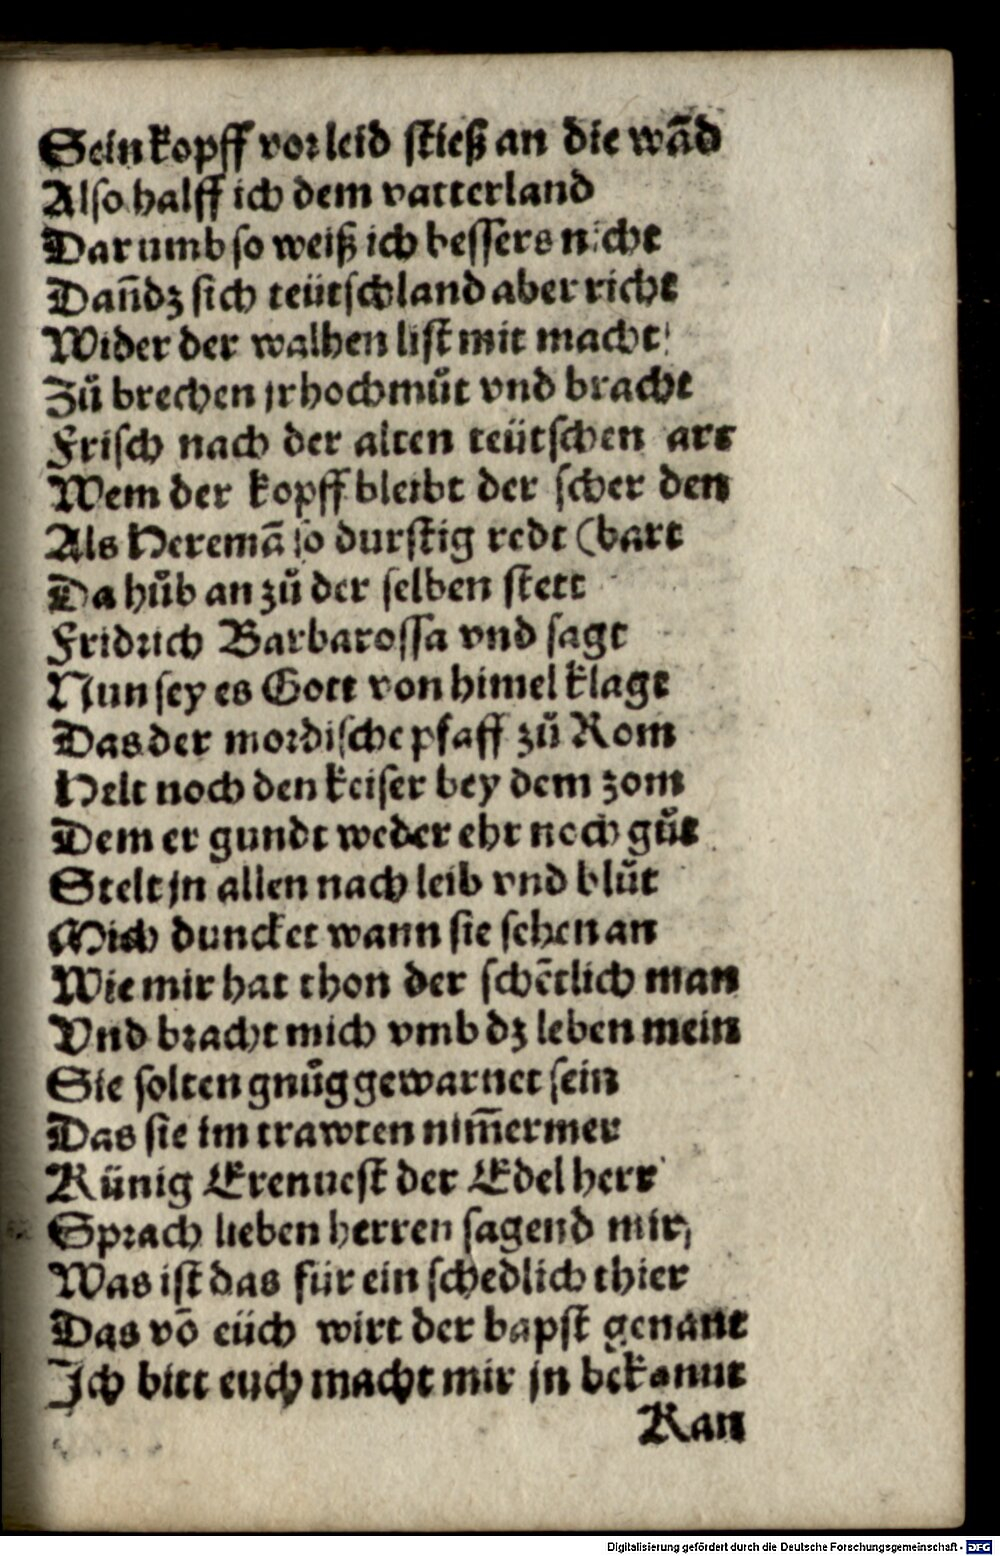 Sein kopff vor leid stieß an die wãd
Also halff ich dem vatterland
Darumb so weiß ich bessers nicht
Dañ dz sich teütschland aber richt
Wider der walhen list mit macht
Zů brechen jr hochmůt vnd bracht
Frisch nach der alten teütschen art
Wem der kopff bleibt der scher den
Als Heremã so durstig redt (bart
Da hůb an zů der selben stett
Fridrich Barbarossa vnd sagt
Nun sey es Gott von himel klagt
Das der mordische pfaff zů Rom
Helt noch den keiser bey dem zom
Dem er gundt weder ehr noch gůt
Stelt jn allen nach leib vnd blůt
Mich duncket wann sie sehen an
Wie mir hat thon der schẽtlich man
Vnd bracht mich vmb dz leben mein
Sie solten gnůg gewarnet sein
Das sie im trawten nim̃ermer
Künig Erenuest der Edel herr
Sprach lieben herren sagend mir,
Was ist das für ein schedlich thier
Das võ eüch wirt der bapst genant
Ich bitt euch macht mir jn bekannt
Kan
Digitalisierung gefördert durch die Deutsche Forschungsgemeinschaft - DFG